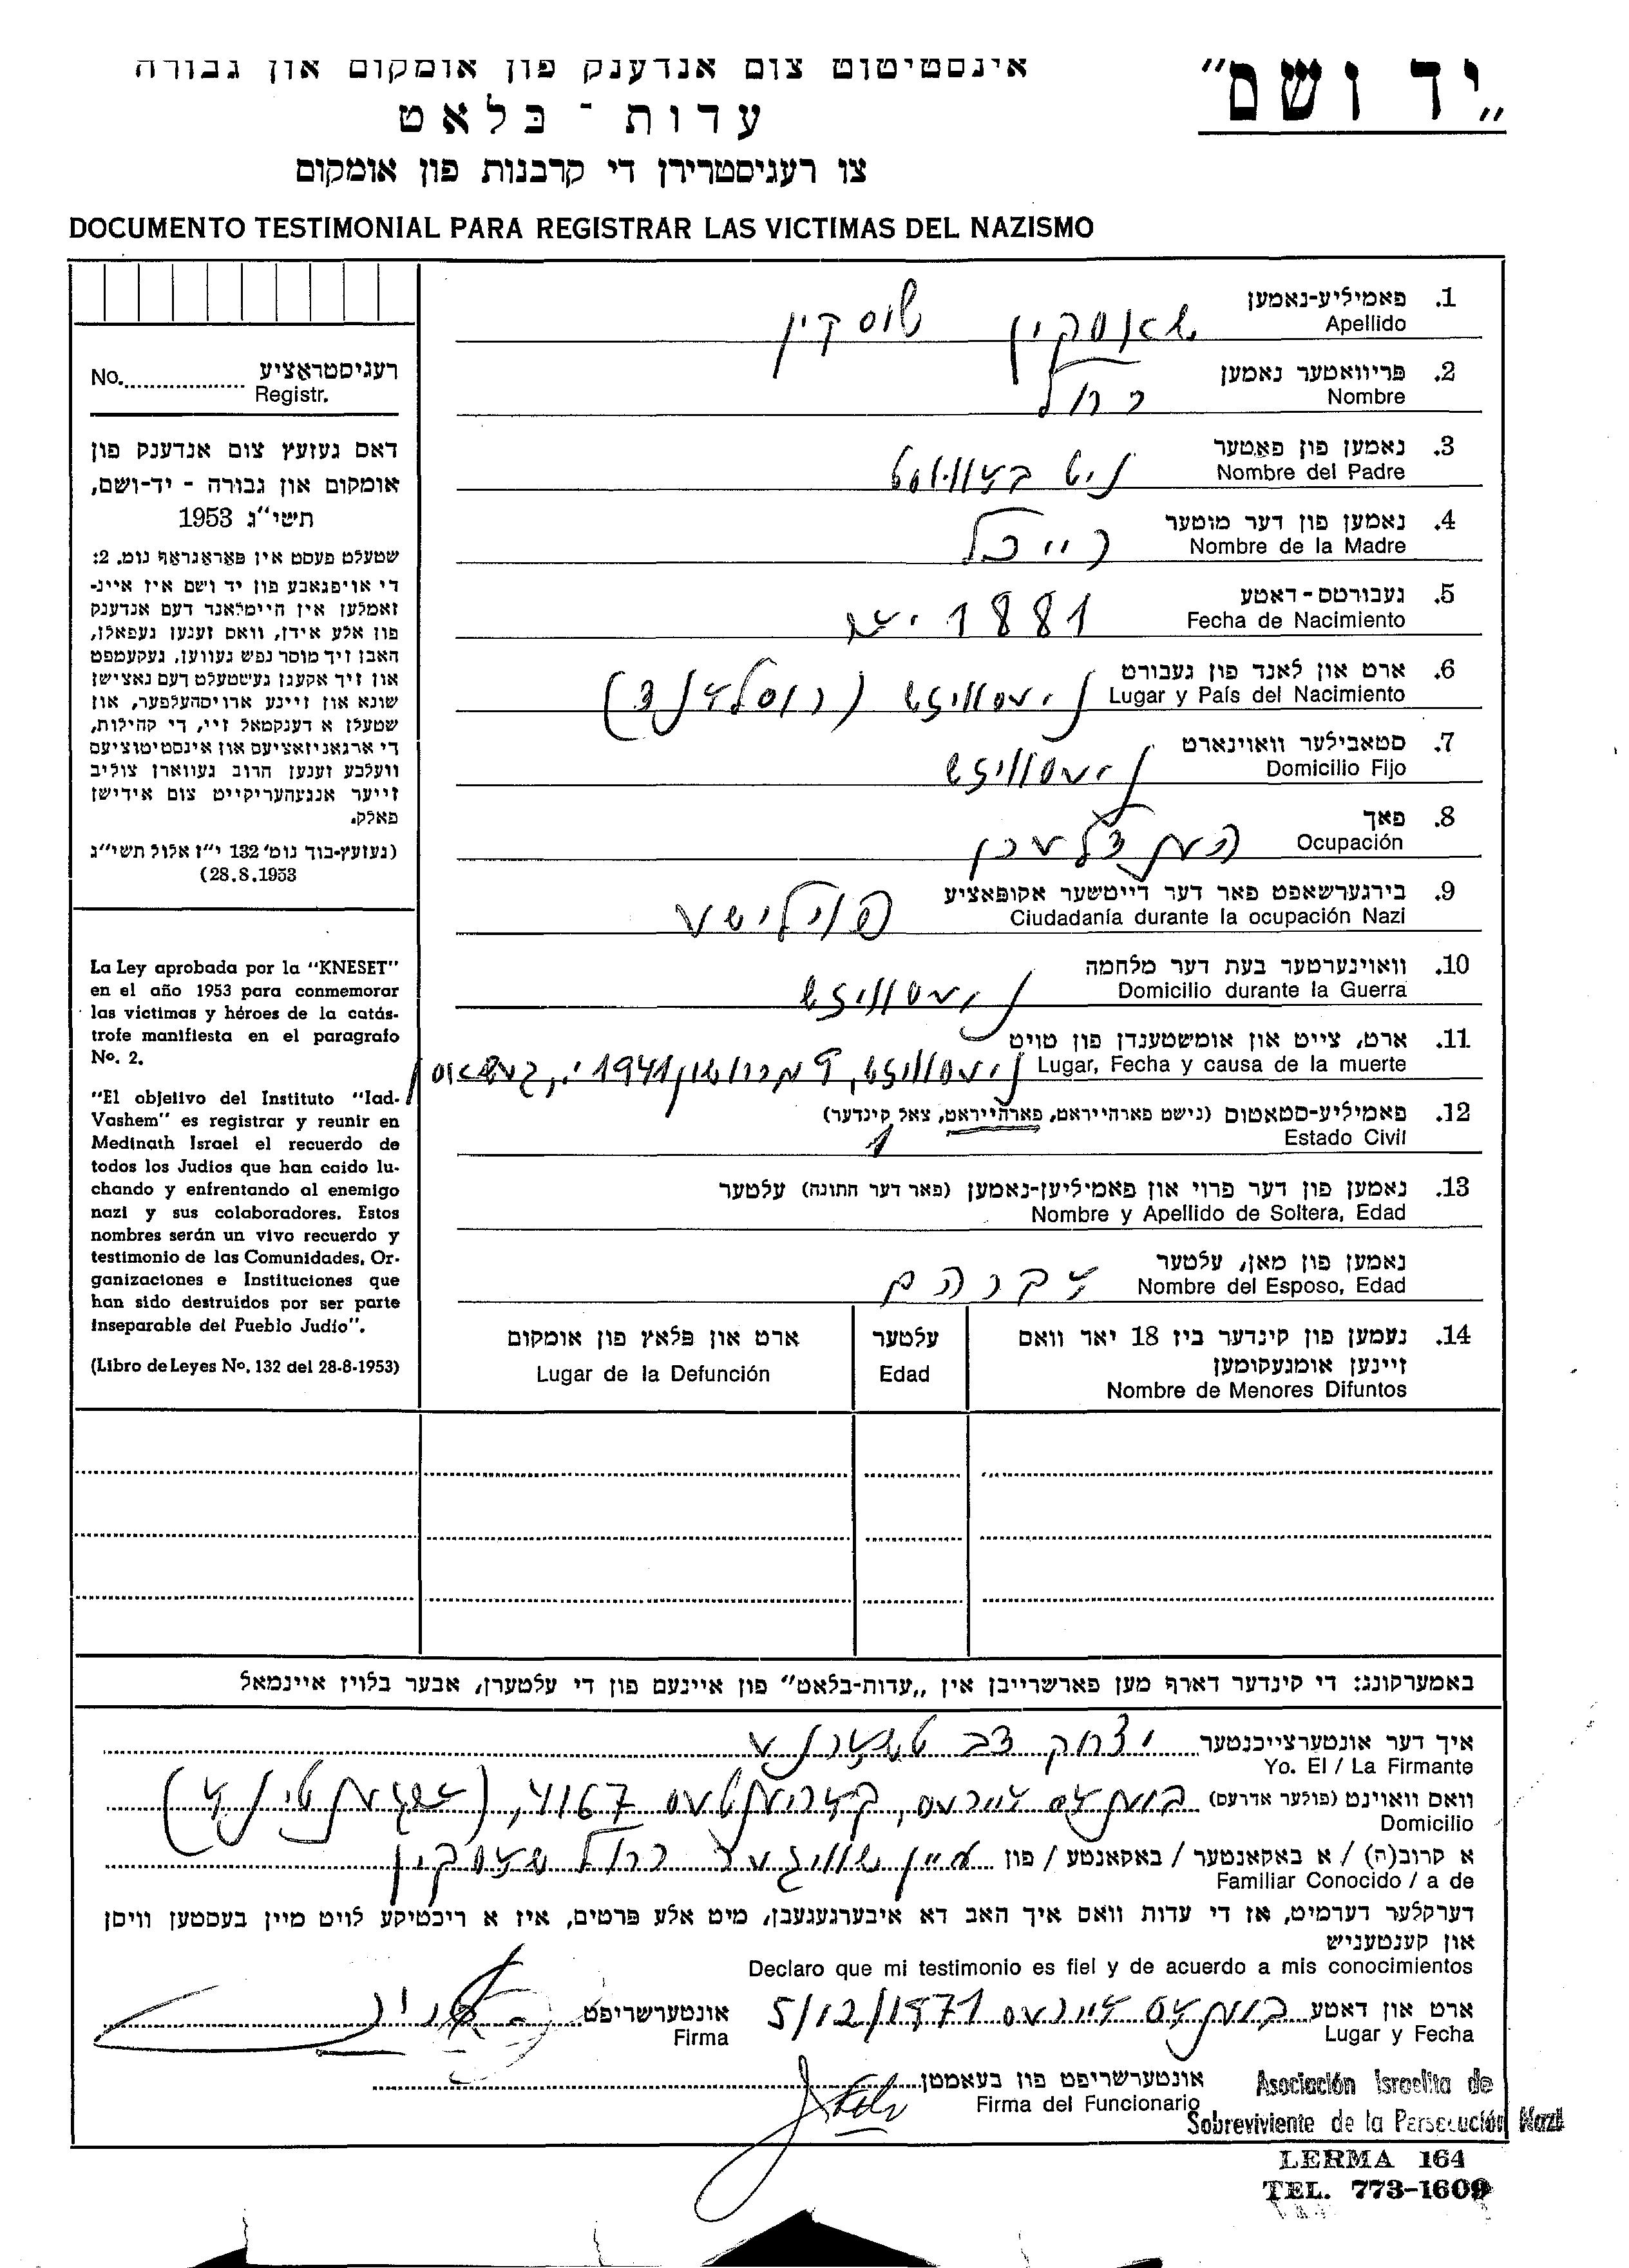 „יד ושם"
אינסטיטוט צום אנדענק פון אומקום און גבורה
עדות - בלאט
צו רעגיסטרירן די קרבנות פון אומקום
DOCUMENTO TESTIMONIAL PARA REGISTRAR LAS VICTIMAS DEL NAZISMO
רעגיסטראציע No.
Registr.
דאס געזעץ צום אנדענק פון
אומקום און גבורה - יד-ושם,
תשי"ג 1953
שטעלט פעסט אין פאראגראף נומ. 2:
די אויפגאבע פון יד ושם איז איינ-
זאמלען אין היימלאנד דעם אנדענק
פון אלע אידן, וואס זענען געפאלן,
האבן זיך מוסר נפש געווען, געקעמפט
און זיך אקעגן געשטעלט דעם נאצישן
שונא און זיינע ארויסהעלפער, און
שטעלן א דענקמאל זיי, די קהילות,
די ארגאניזאציעס און אינסטיטוציעס
וועלכע זענען חרוב געווארן צוליב
זייער אנגעהעריקייט צום אידישן
פאלק.
(געזעץ-בוך נומ' 132 י"ז אלול תשי"ג
28.8.1953)
La Ley aprobada por la "KNESET"
en el año 1953 para conmemorar
las victimas y héroes de la catás-
trofe manifiesta en el paragrafo
Nº. 2.
"El objetivo del Instituto "Iad-
Vashem" es registrar y reunir en
Medinath Israel el recuerdo de
todos los Judios que han caido lu-
chando y enfrentando al enemigo
nazi y sus colaboradores. Estos
nombres serán un vivo recuerdo y
testimonio de las Comunidades, Or-
ganizaciones e Instituciones que
han sido destruidos por ser parte
inseparable del Pueblo Judío".
(Libro de Leyes Nº. 132 del 28-8-1953)
1. פאמיליע-נאמען שאסקין שוסקין
Apellido
2. פריוואטער נאמען רחל
Nombre
3. נאמען פון פאטער ניט באוואוסט
Nombre del Padre
4. נאמען פון דער מוטער רייכל
Nombre de la Madre
5. געבורטס-דאטע 1881
Fecha de Nacimiento
6. ארט און לאנד פון געבורט (רוסלאנד)
Lugar y País del Nacimiento
7. סטאבילער וואוינארט
Domicilio Fijo
8. פאך
Ocupación
9. בירגערשאפט פאר דער דייטשער אקופאציע פוילישע
Ciudadanía durante la ocupación Nazi
10. וואוינערטער בעת דער מלחמה
Domicilio durante la Guerra
11. ארט, צייט און אומשטענדן פון טויט 1941
Lugar, Fecha y causa de la muerte
12. פאמיליע-סטאטוס (נישט פארהייראט, פארהייראט, צאל קינדער) 1
Estado Civil
13. נאמען פון דער פרוי און פאמיליען-נאמען (פאר דער חתונה) עלטער
Nombre y Apellido de Soltera, Edad
נאמען פון מאן, עלטער אברהם
Nombre del Esposo, Edad
14. נעמען פון קינדער ביז 18 יאר וואס עלטער ארט און פלאץ פון אומקום
זיינען אומגעקומען
Nombre de Menores Difuntos Edad Lugar de la Defunción
באמערקונג: די קינדער דארף מען פארשרייבן אין „עדות-בלאט" פון איינעם פון די עלטערן, אבער בלויז איינמאל
איך דער אונטערצייכנטער יצחק דב
Yo. El / La Firmante
וואס וואוינט (פולער אדרעס) בוענאס איירעס, 4167, (ארגענטינע)
Domicilio
א קרוב(ה) / א באקאנטער / באקאנטע / פון מיין שוויגער רחל שאסקין
Familiar Conocido / a de
דערקלער דערמיט, אז די עדות וואס איך האב דא איבערגעגעבן, מיט אלע פרטים, איז א ריכטיקע לויט מיין בעסטען וויסן
און קענטעניש
Declaro que mi testimonio es fiel y de acuerdo a mis conocimientos
ארט און דאטע בוענאס איירעס 5/12/1971 אונטערשריפט
Lugar y Fecha Firma
אונטערשריפט פון בעאמטן
Firma del Funcionario
Asociación Israelita de
Sobreviviente de la Persecución Nazi
LERMA 164
TEL. 773-1609